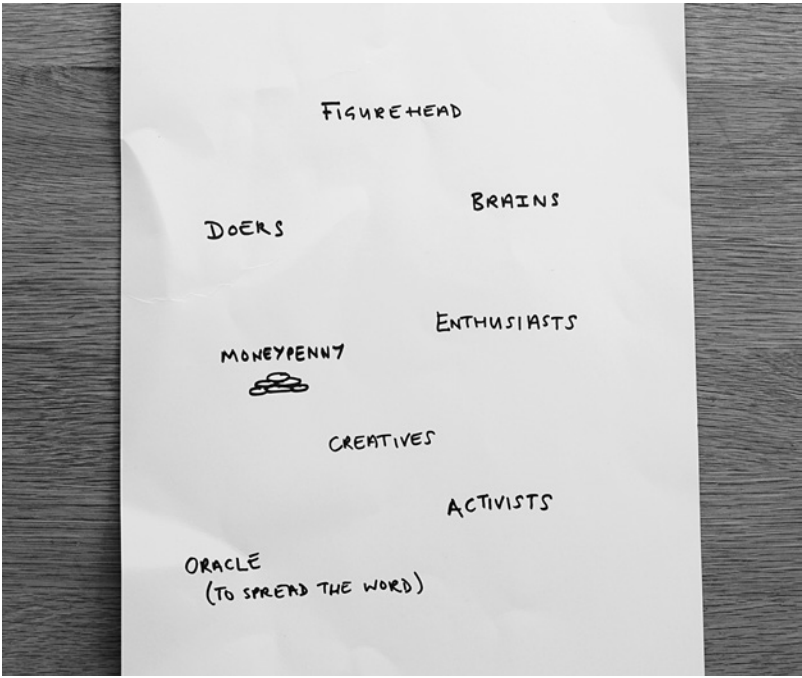 FIGUREHEAD
BRAINS
DOERS
ENTHUSIASTS
MONEYPENNY
CREATIVES
ACTIVISTS
ORACLE
(TO SPREAD THE WORD)